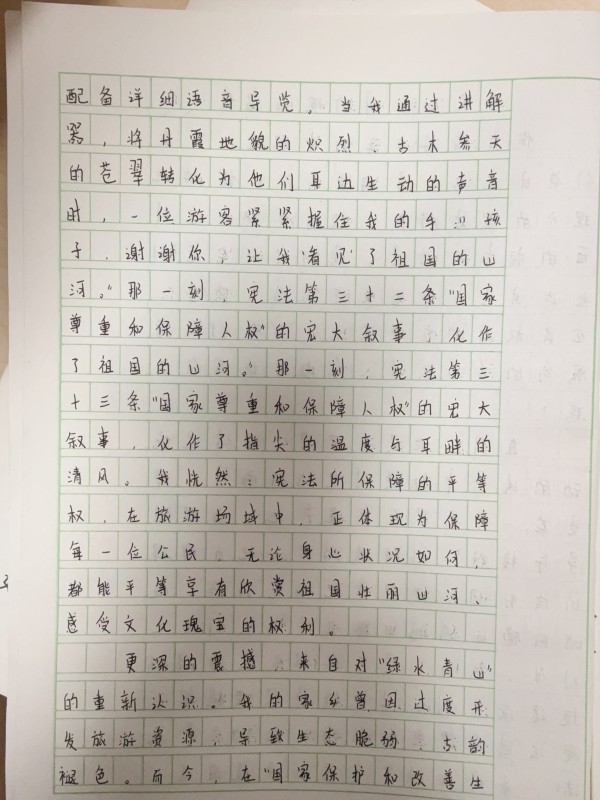 配备详细语音导览。当我通过讲解
器，将丹霞地貌的炽烈、古木参天
的苍翠转化为他们耳边生动的声音
时，一位游客紧紧握住我的手：“孩
子，谢谢你，让我‘看见’了祖国的山
河。”那一刻，宪法第三十二条“国家
尊重和保障人权”的宏大叙事，化作
了祖国的山河。”那一刻，宪法第三
十三条“国家尊重和保障人权”的宏大
叙事，化作了指尖的温度与耳畔的
清风。我恍然：宪法所保障的平等
权，在旅游场域中，正体现为保障
每一位公民，无论身心状况如何，
都能平等享有欣赏祖国壮丽山河、
感受文化瑰宝的权利。
更深的震撼，来自对“绿水青山”
的重新认识。我的家乡曾因过度开
发旅游资源，导致生态脆弱，古韵
褪色。而今，在“国家保护和改善生